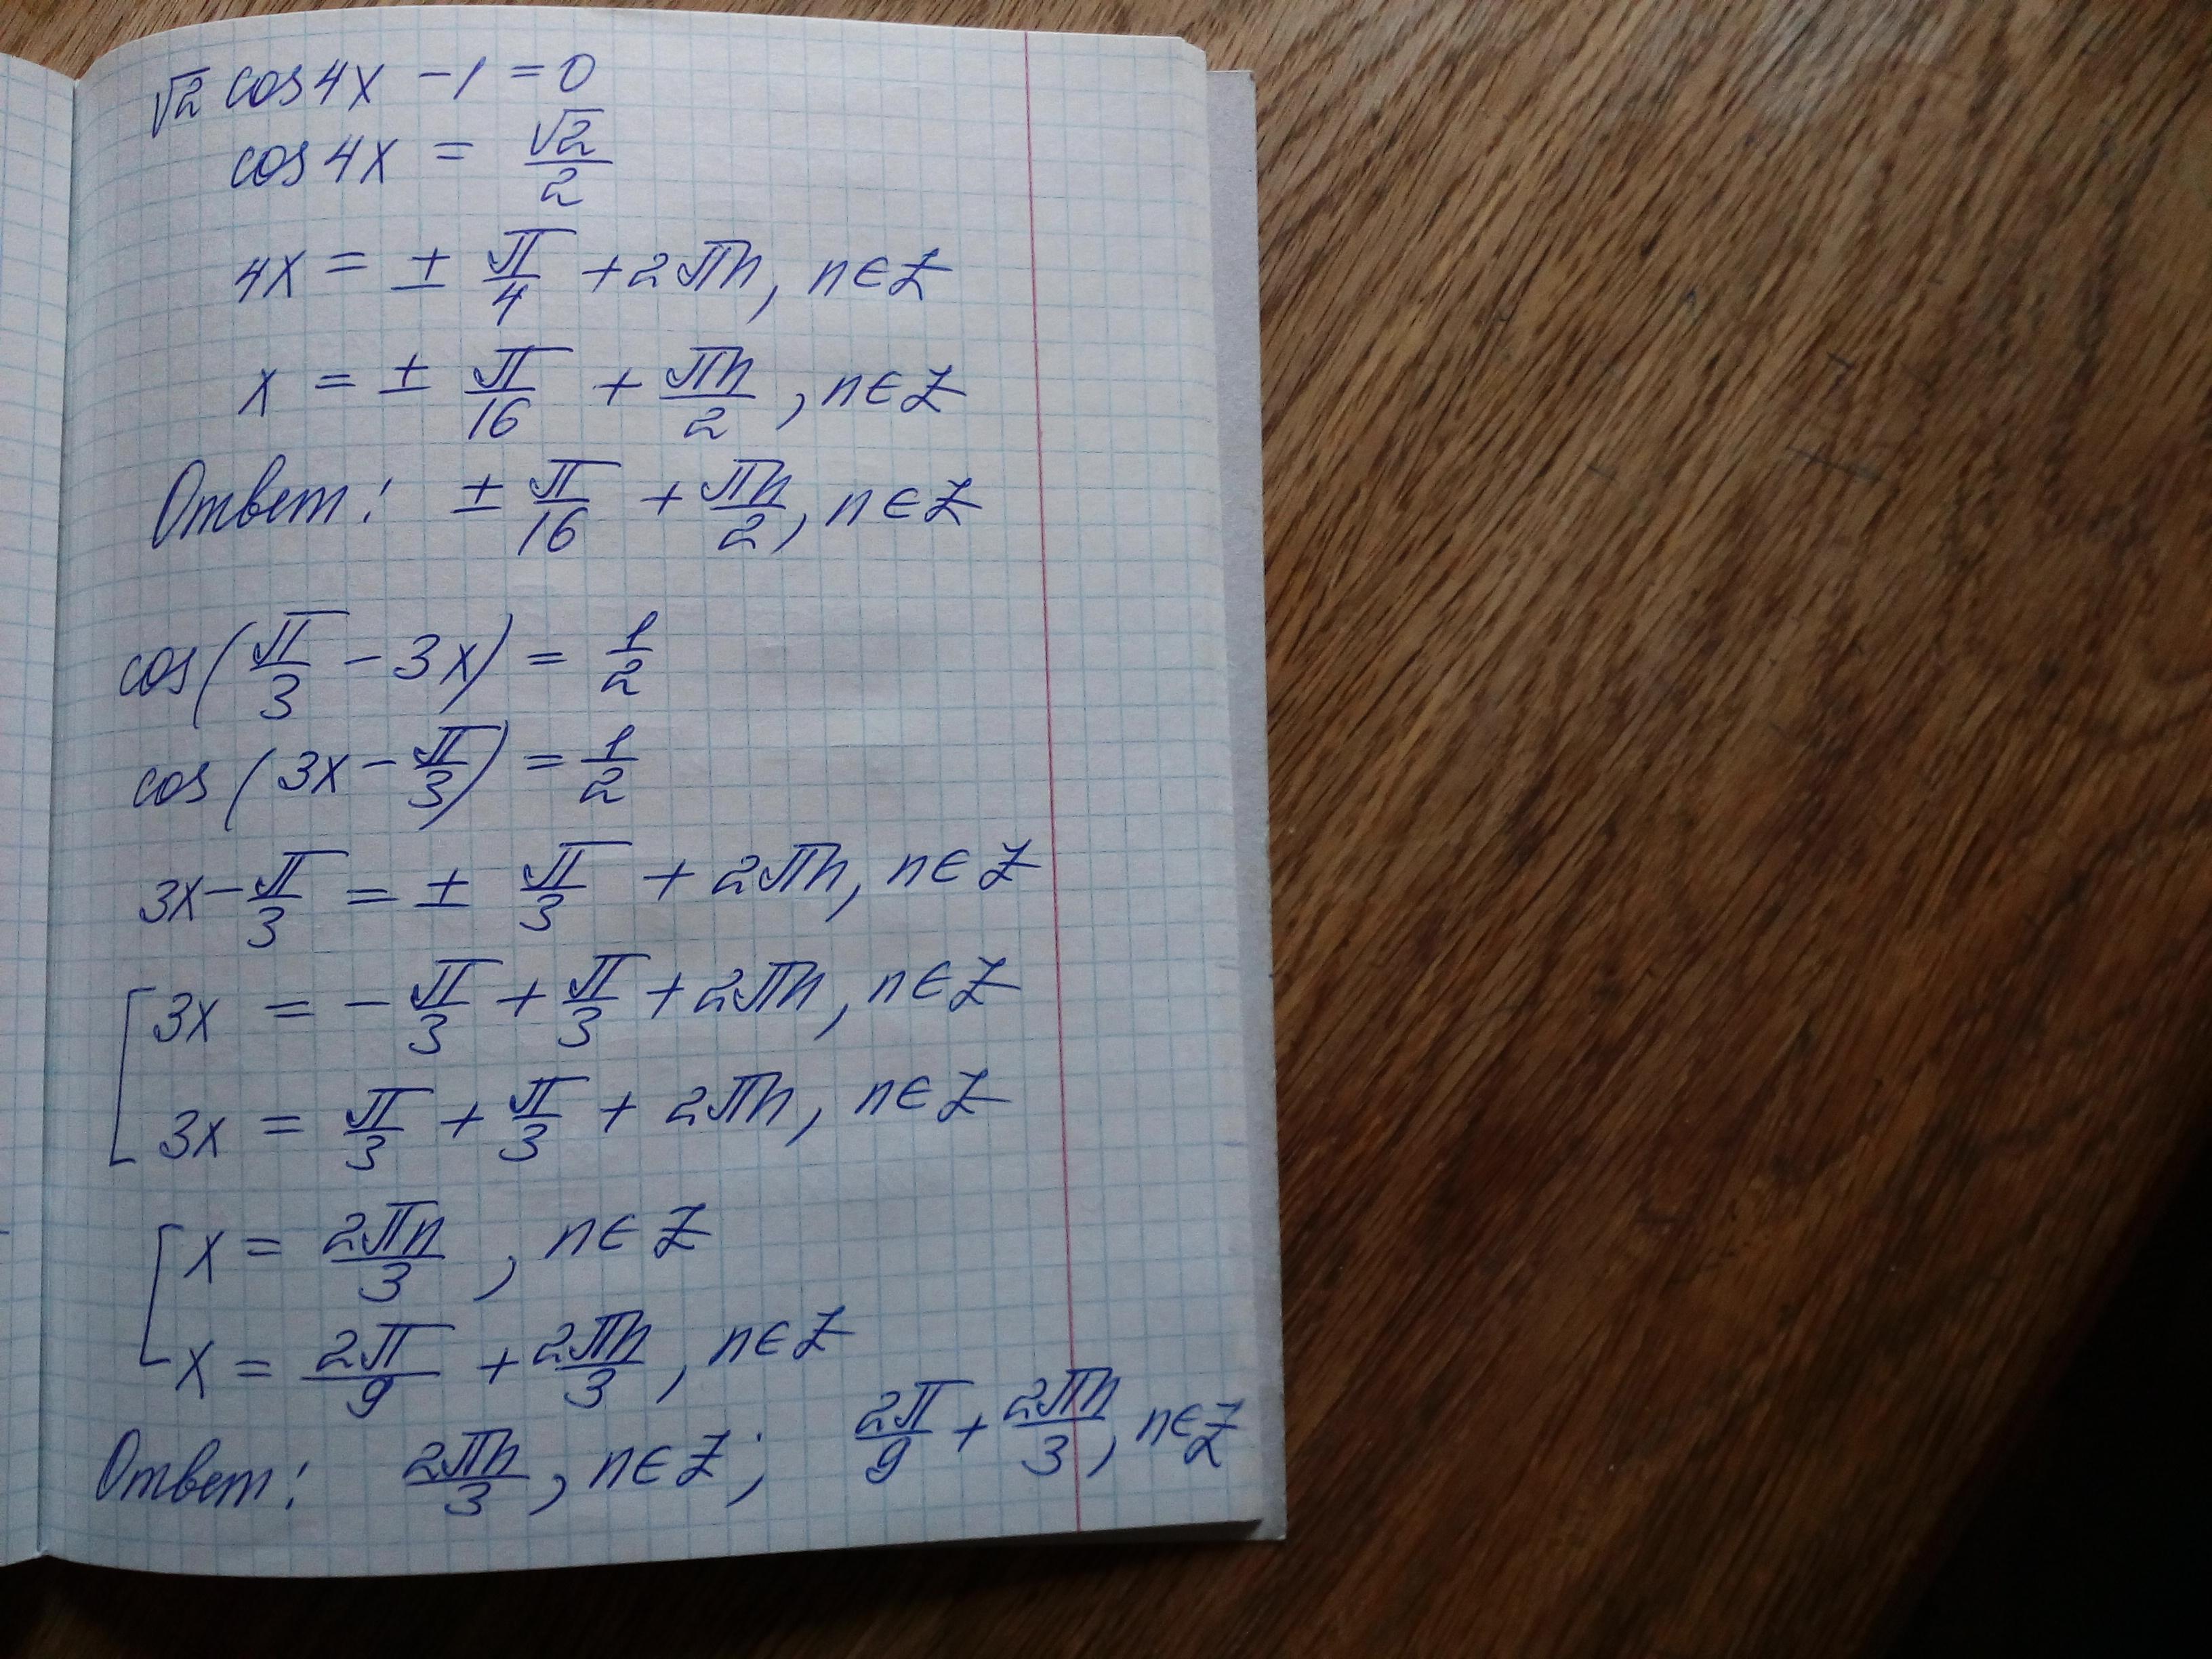 √2 cos4x − 1 = 0
cos4x = √2/2
4x = ± π/4 + 2πn, n∈Z
x = ± π/16 + πn/2, n∈Z
Ответ: ± π/16 + πn/2, n∈Z
cos(π/3 − 3x) = 1/2
cos(3x − π/3) = 1/2
3x − π/3 = ± π/3 + 2πn, n∈Z
[3x = − π/3 + π/3 + 2πn, n∈Z
3x = π/3 + π/3 + 2πn, n∈Z
[x = 2πn/3, n∈Z
x = 2π/9 + 2πn/3, n∈Z
Ответ: 2πn/3, n∈Z; 2π/9 + 2πn/3, n∈Z